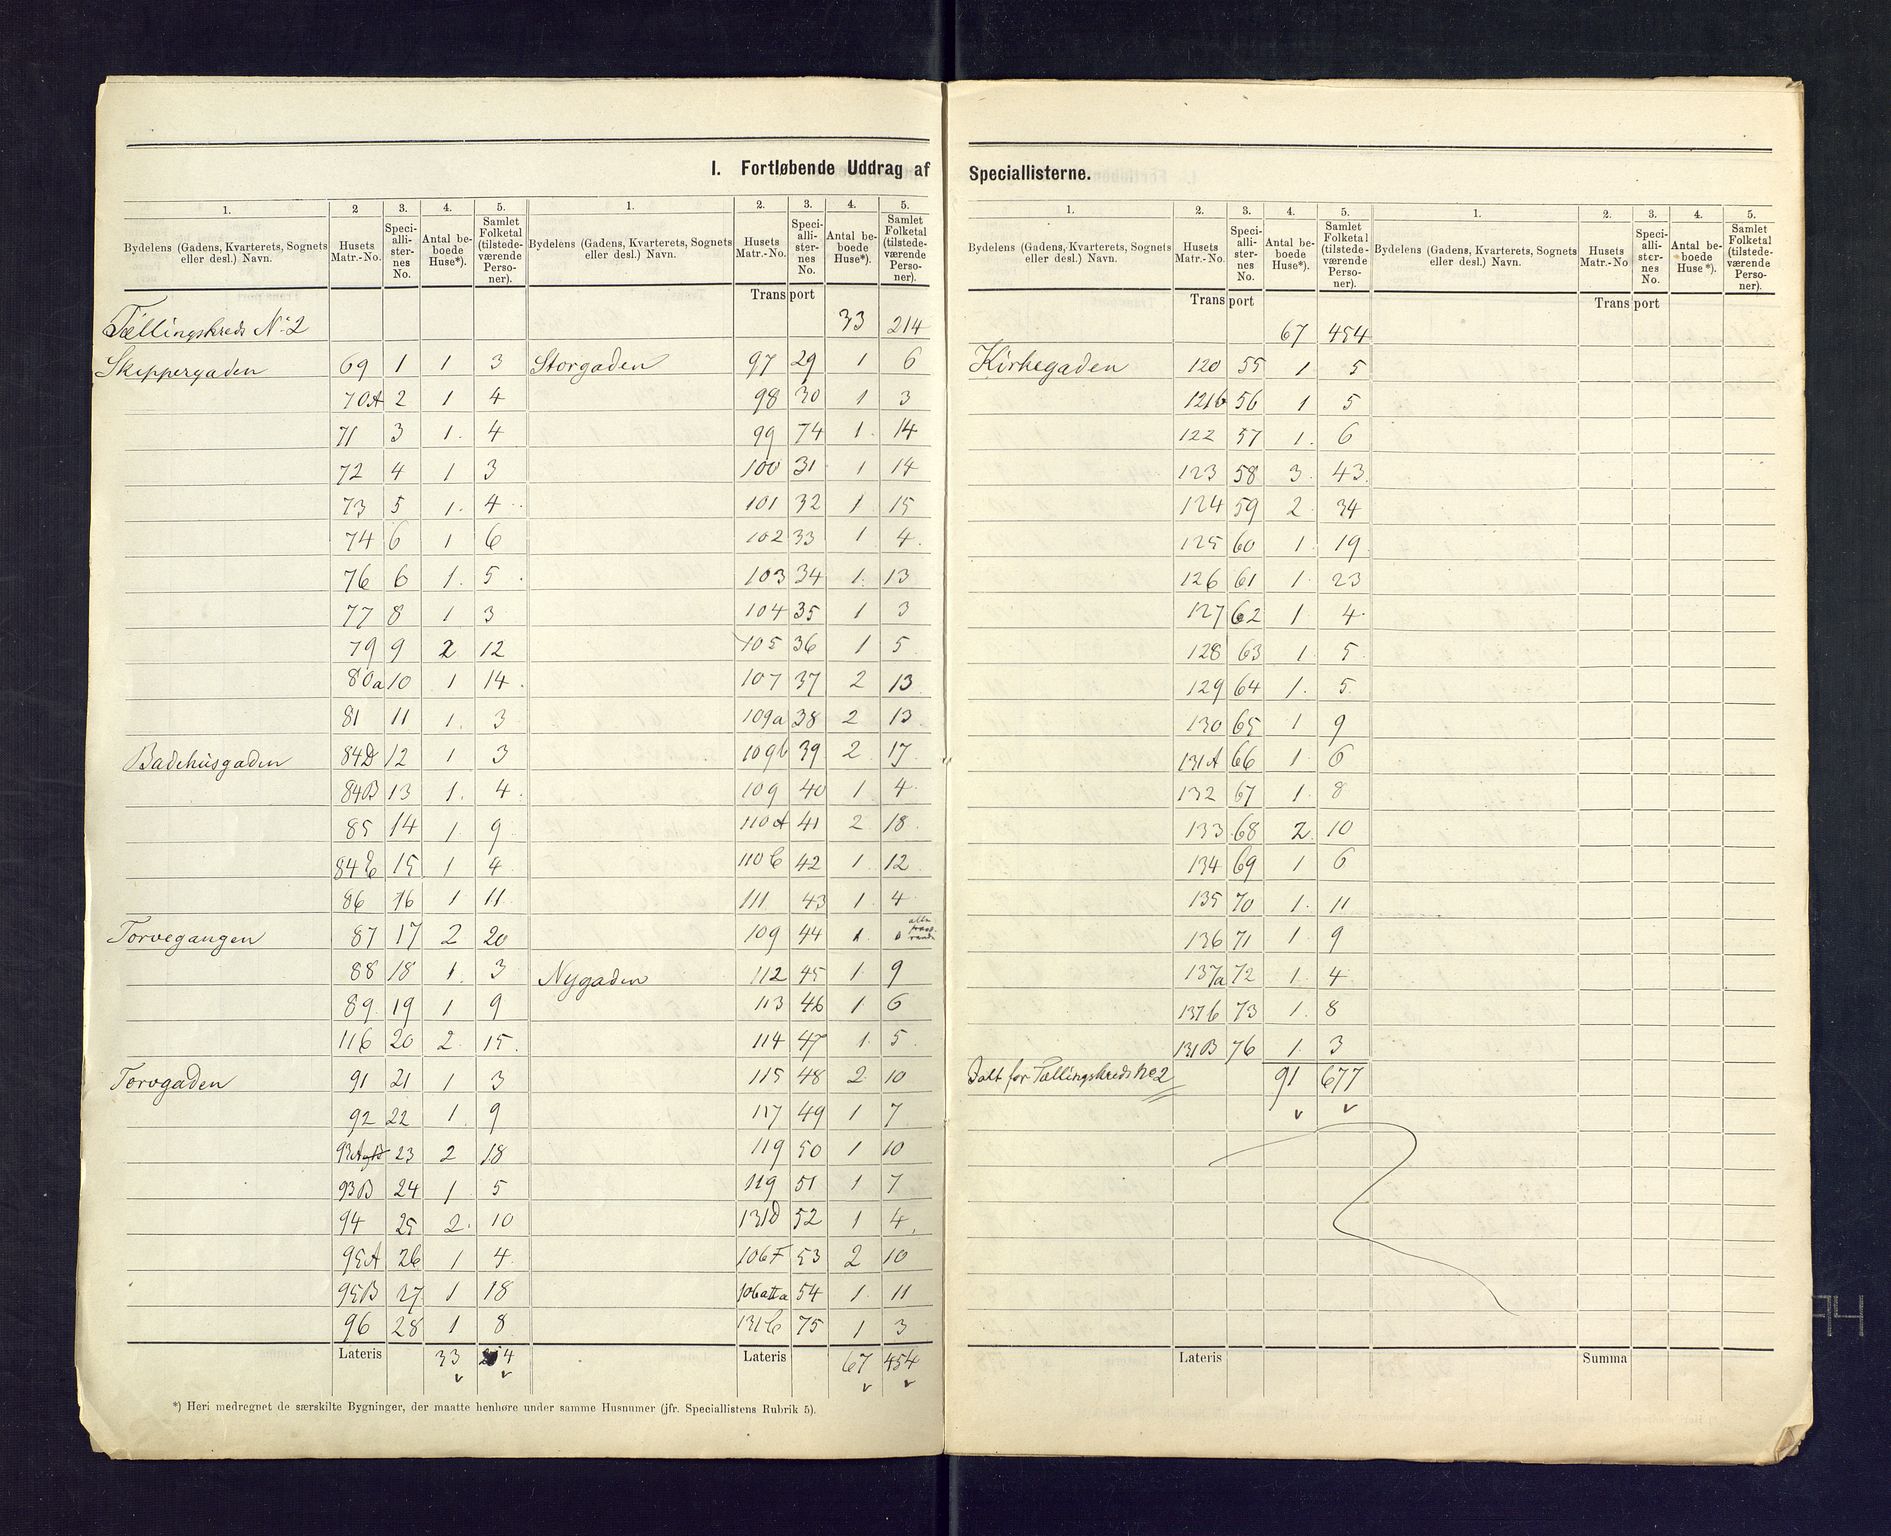 I. Fortløbende Uddrag af Speciallisterne.
1. 2 3. 4. 5. 1. 2. 3. 4. 5.
Bydelens (Gadens, Kvarterets, Sognets eller desl.) Navn. Husets Matr.-No. Speciallisternes No. Antal beboede Huse*). Samlet Folketal (tilstedeværende Personer).
Bydelens (Gadens, Kvarterets, Sognets eller desl.) Navn. Husets Matr.-No. Speciallisternes No. Antal beboede Huse*). Samlet Folketal (tilstedeværende Personer).
Transport
Tællingskreds No 2 33 214
Skippergaden 69 1 1 3 Storgaden 97 29 1 6
70A 2 1 4 98 30 1 3
71 3 1. 4 99 74 1. 14
72 4 1 3 100 31 1 14
73 5 1. 4 101 32 1 15
74 6 1 6 102 33 1 4.
76 6 1. 5 103 34 1. 13
77 8 1 3 104 35 1 3
79 9 2 12 105 36 1 5
80a 10 1 14 107 37 2 13
81 11 1. 3 109a 38 2 13.
Badehusgaden 84D 12 1 3 109b 39 2 17
84B 13 1. 4 109 40 1 4
85 14 1 9 110A 41 2 18
84C 15 1 4 110C 42 1 12
86 16 1 11 111 43 1 4
Torvegangen 87 17 2 20 109 44 1 0
88 18 1. 3 Nygaden 112 45 1 9
89 19 1 9 113 46 1 6
116 20 2 15. 114 47 1. 5
Torvgaden 91 21 1 3 115 48 2 10
92 22 1. 9 117 49 1 7
93A 23 2 18 119 50 1 10
93B 24 1 5 119 51 1 7
94 25 2. 10 131D 52 1 4
95A 26 1 4 106F 53 2 10
95B 27 1 18 106 54 1. 11
96 28 1 8 131C 75 1 3
Lateris 33 214 Lateris 67 454
*) Heri medregnet de særskilte Bygninger, der maatte henhøre under samme Husnumer (jfr. Speciallistens Rubrik 5).
1. 2. 3. 4. 5. 1. 2. 3. 4. 5.
Bydelens (Gadens, Kvarterets, Sognets eller desl.) Navn. Husets Matr.-No. Speciallisternes No. Antal beboede Huse*). Samlet Folketal (tilstedeværende Personer).
Bydelens (Gadens, Kvarterets, Sognets eller desl.) Navn. Husets Matr.-No Speciallisternes No. Antal beboede Huse*). Samlet Folketal (tilstedeværende Personer).
Transport Transport
67 454
Kirkegaden 120 55 1 5
121b 56 1 5
122 57 1. 6
123 58 3 43
124 59 2 34
125 60 1 19
126 61 1. 23
127 62 1 4
128 63 1. 5
129 64 1. 5
130 65 1 9
131A 66 1 6
132 67 1. 8
133 68 2. 10
134 69 1 6
135 70 1. 11
136 71 1 9
137a 72 1. 4
137b 73 1. 8
131B 76 1. 3
Ialt for Tællingskreds No 2 91 677
Lateris Summa